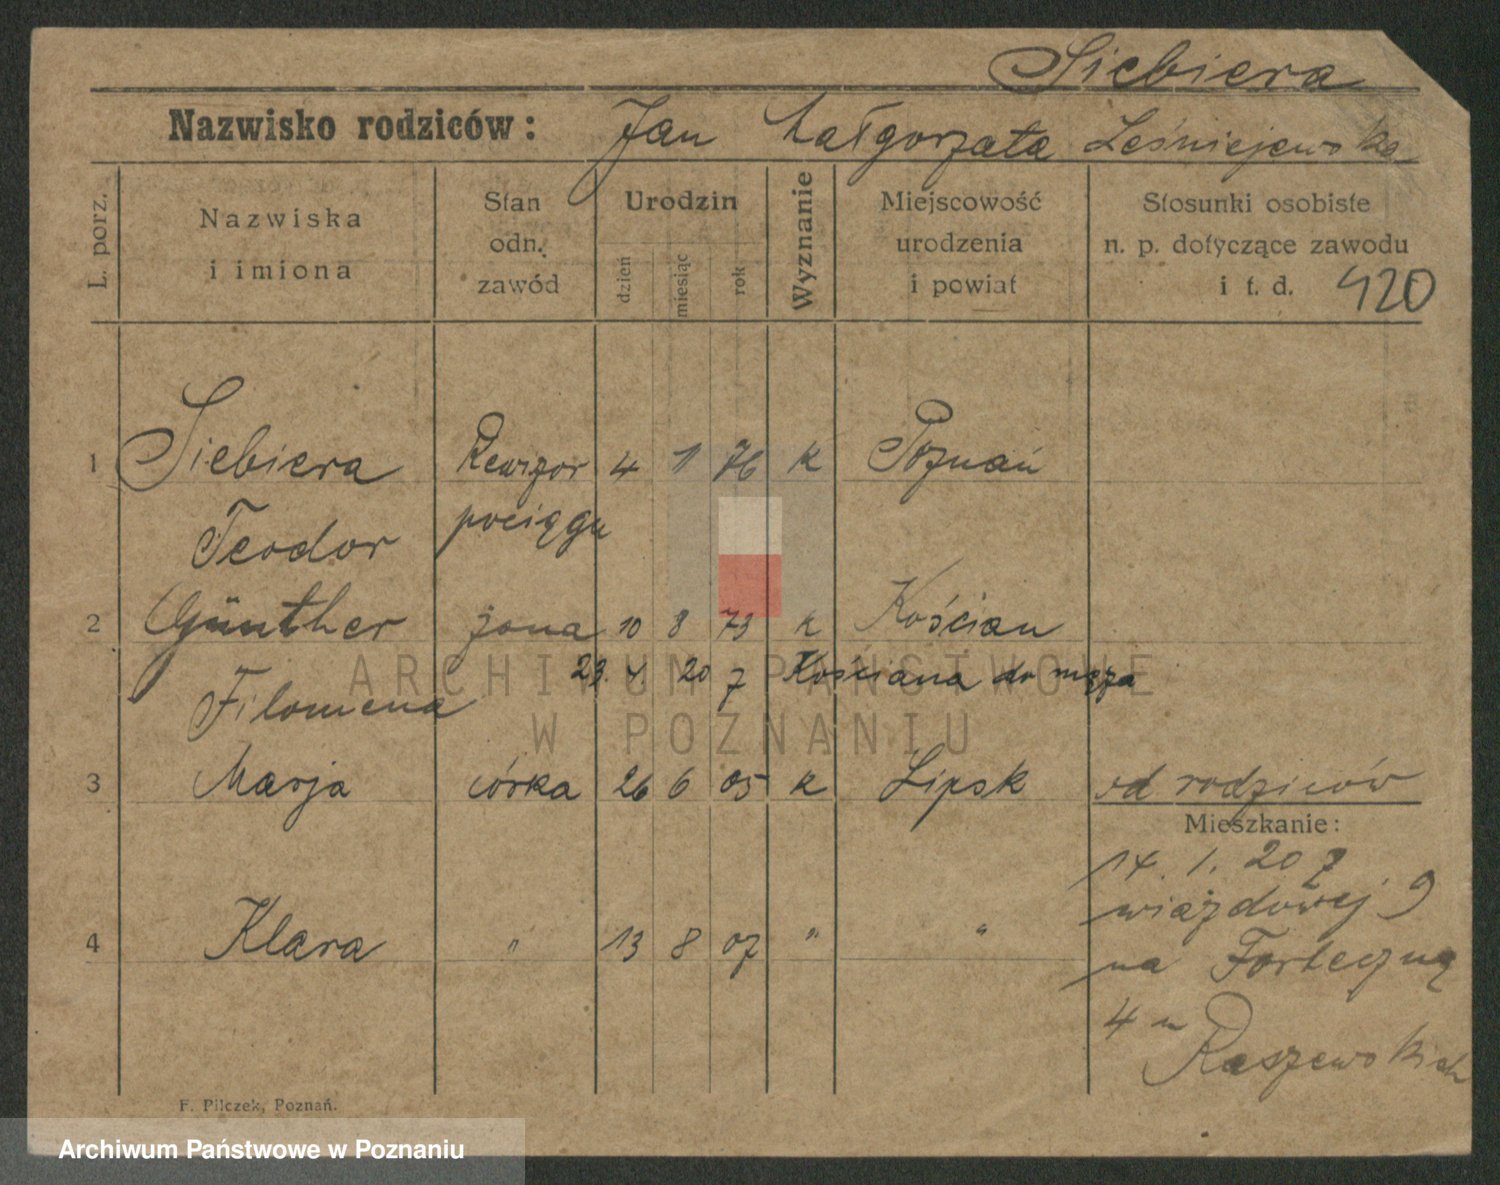 Siebiera
Nazwisko rodziców: Jan Małgorzata Leśniejewska
L. porz.
Nazwiska
i imiona
Stan
odn.
zawód
Urodzin
dzień
miesiąc
rok
Wyznanie
Miejscowość
urodzenia
i powiat
Stosunki osobiste
n. p. dotyczące zawodu
i t. d. 420
1 Siebiera Rewizor 4 1 76 k Poznań
Teodor pociągu
2 Günther żona 10 8 73 k Kościan
23. 4 20 z Kościana do męża
Filomena
3 Marja córka 26 6 05 k Lipsk od rodziców
Mieszkanie:
14. 1. 20 z
wiazdowej 9
4 Klara " 13 8 07 " "
na Forteczną
4 u
Raszewskich
F. Pilczek, Poznań.
ARCHIWUM PAŃSTWOWE
W POZNANIU
Archiwum Państwowe w Poznaniu